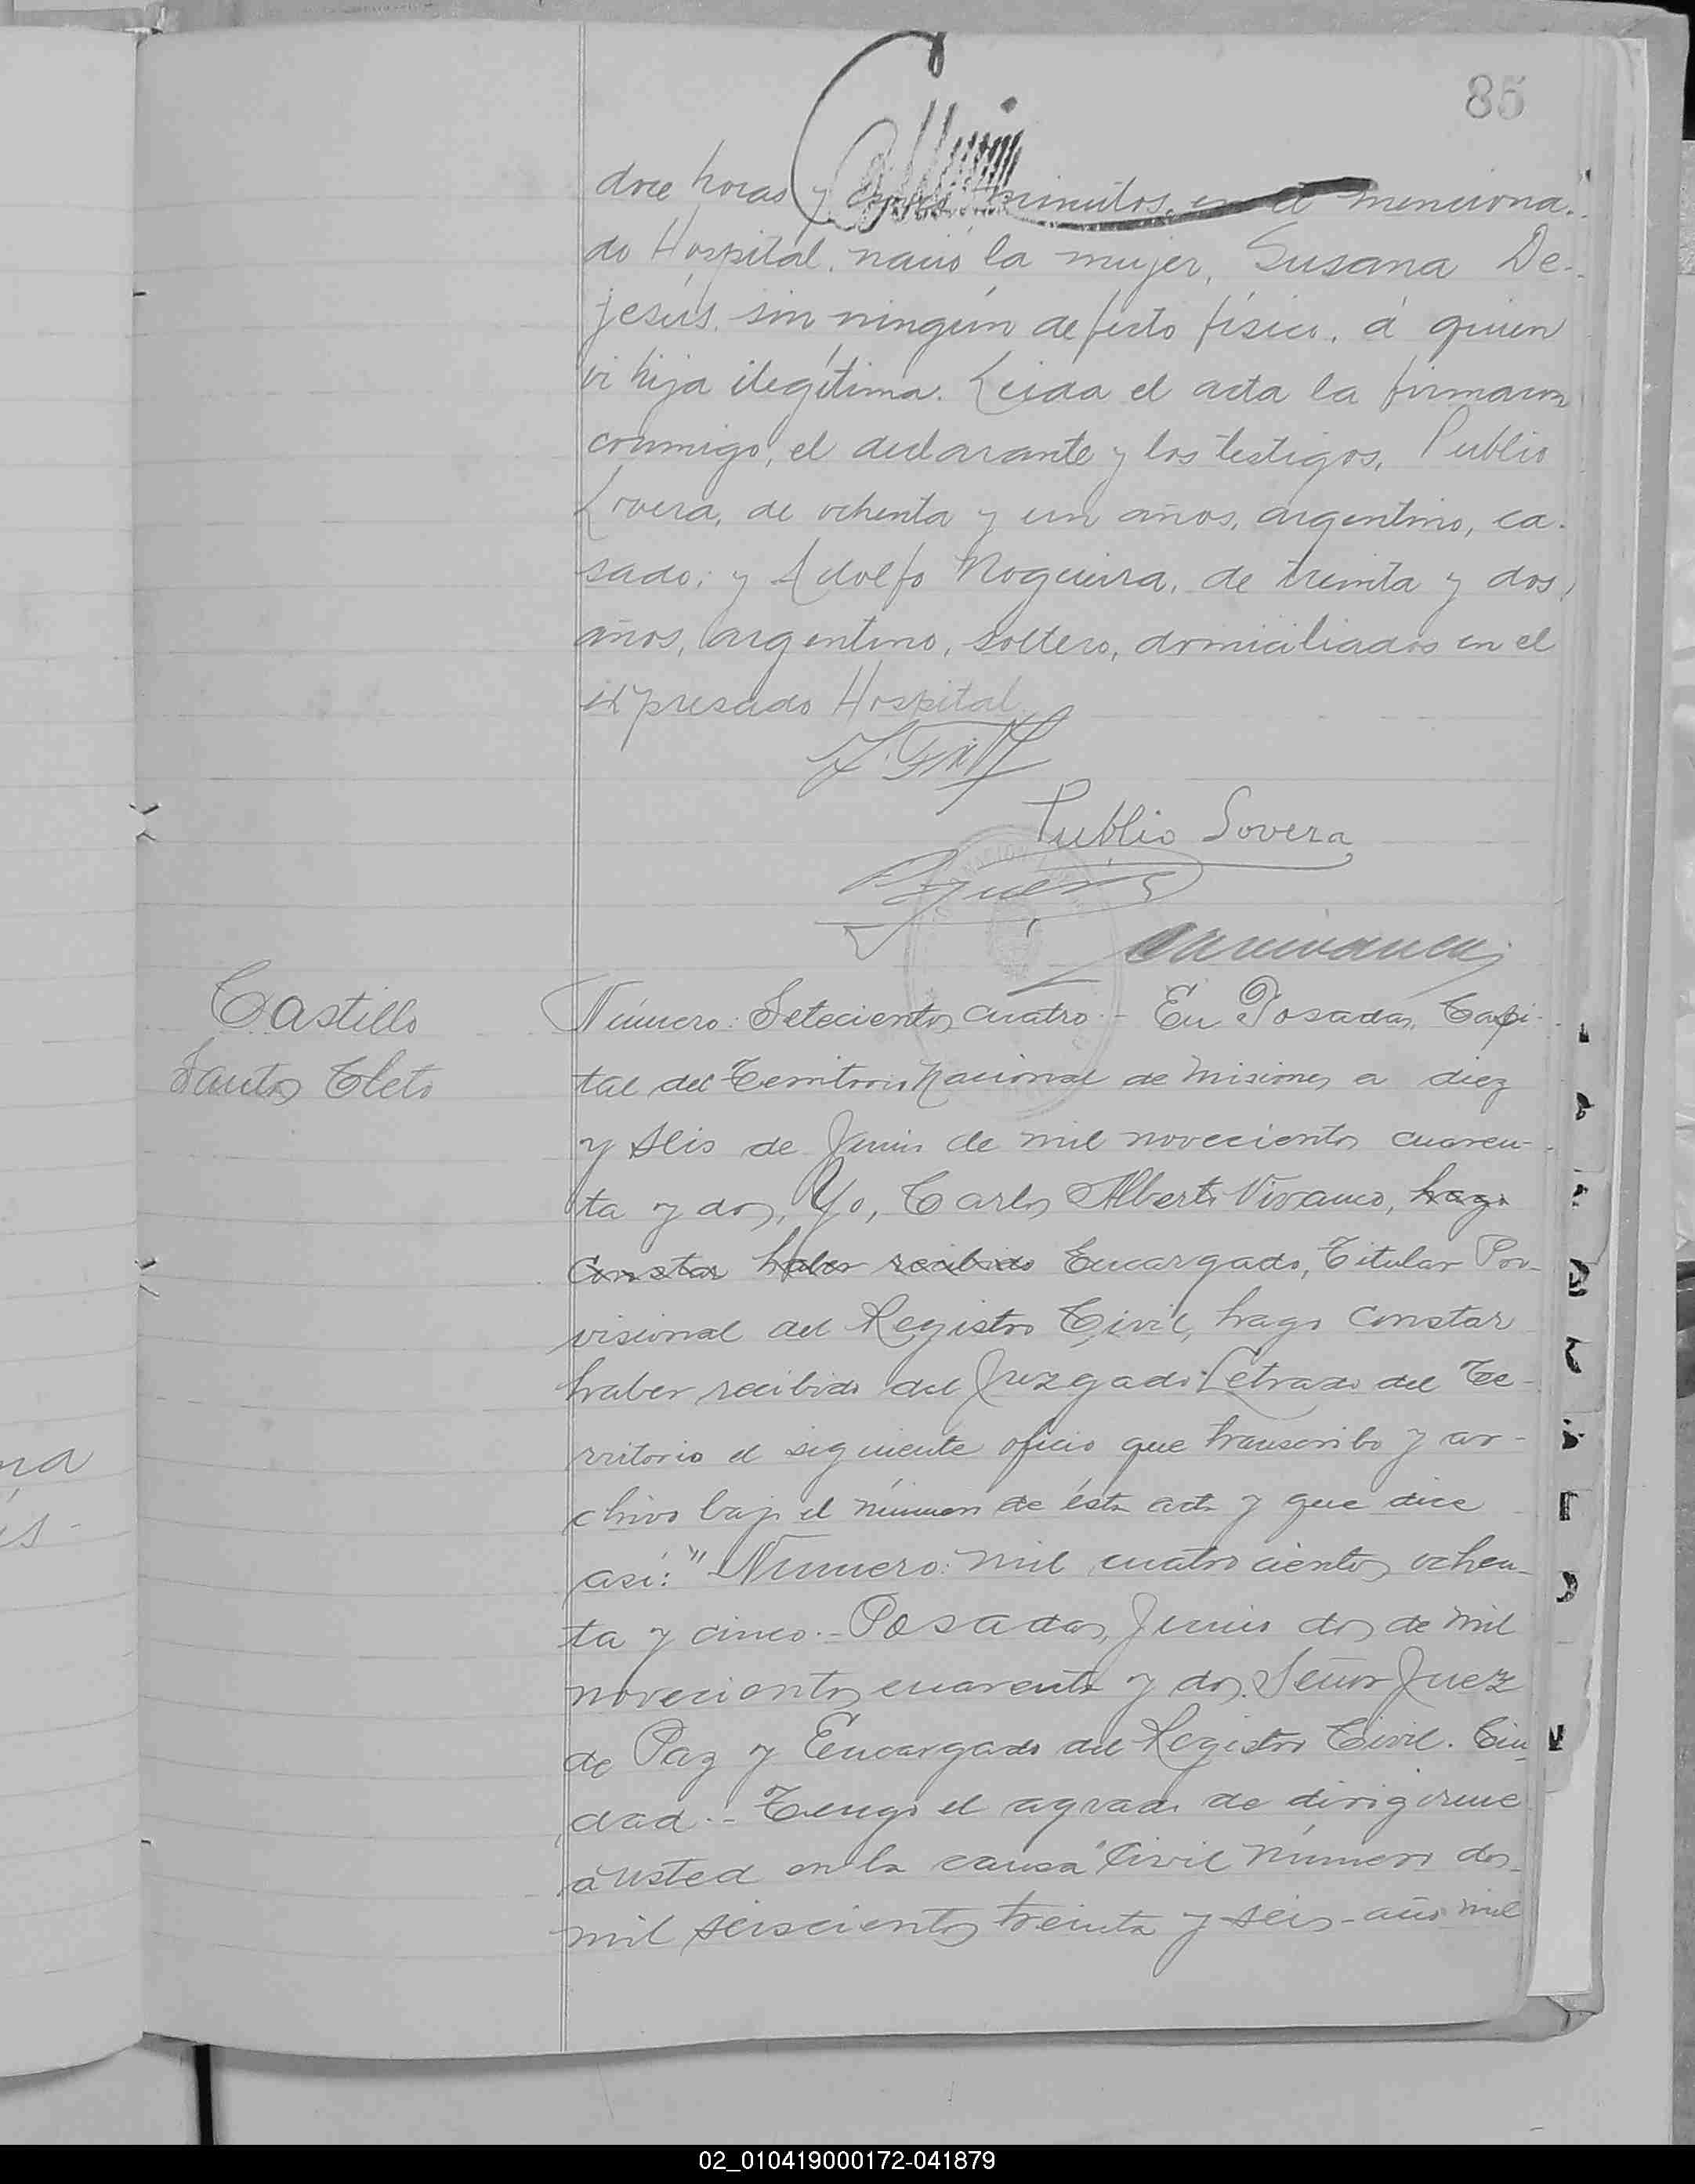 85
doce horas y minutos, en el menciona-
do Hospital, nació la mujer, Susana De-
jesús, sin ningún defecto físico, á quien
vi hija ilegítima. Leida el acta la firmaron
conmigo, el declarante y los testigos, Publio
Lovera, de ochenta y un años, argentino, ca-
sado; y Adolfo Nogueira, de treinta y dos
años, argentino, soltero, domiciliados en el
expresado Hospital.
Publio Lovera
Castillo
Santos Cleto
Número: Setecientos cuatro.- En Posadas, Capi-
tal del Territorio Nacional de Misiones a diez
y seis de Junio de mil novecientos cuaren-
ta y dos, Yo, Carlos Alberto Vivanco, hago
constar haber recibido Encargado, Titular Pro-
visional del Registro Civil, hago constar
haber recibido del Juzgado Letrado del Te-
rritorio el siguiente oficio que transcribo y ar-
chivo bajo el número de ésta acta y que dice
así: "Número: mil cuatrocientos ochen-
ta y cinco.- Posadas, Junio dos de mil
novecientos cuarenta y dos. Señor Juez
de Paz y Encargado del Registro Civil. Ciu-
dad.- Tengo el agrado de dirigirme
a usted en la causa Civil número dos
mil seiscientos treinta y seis - año mil
02_010419000172-041879